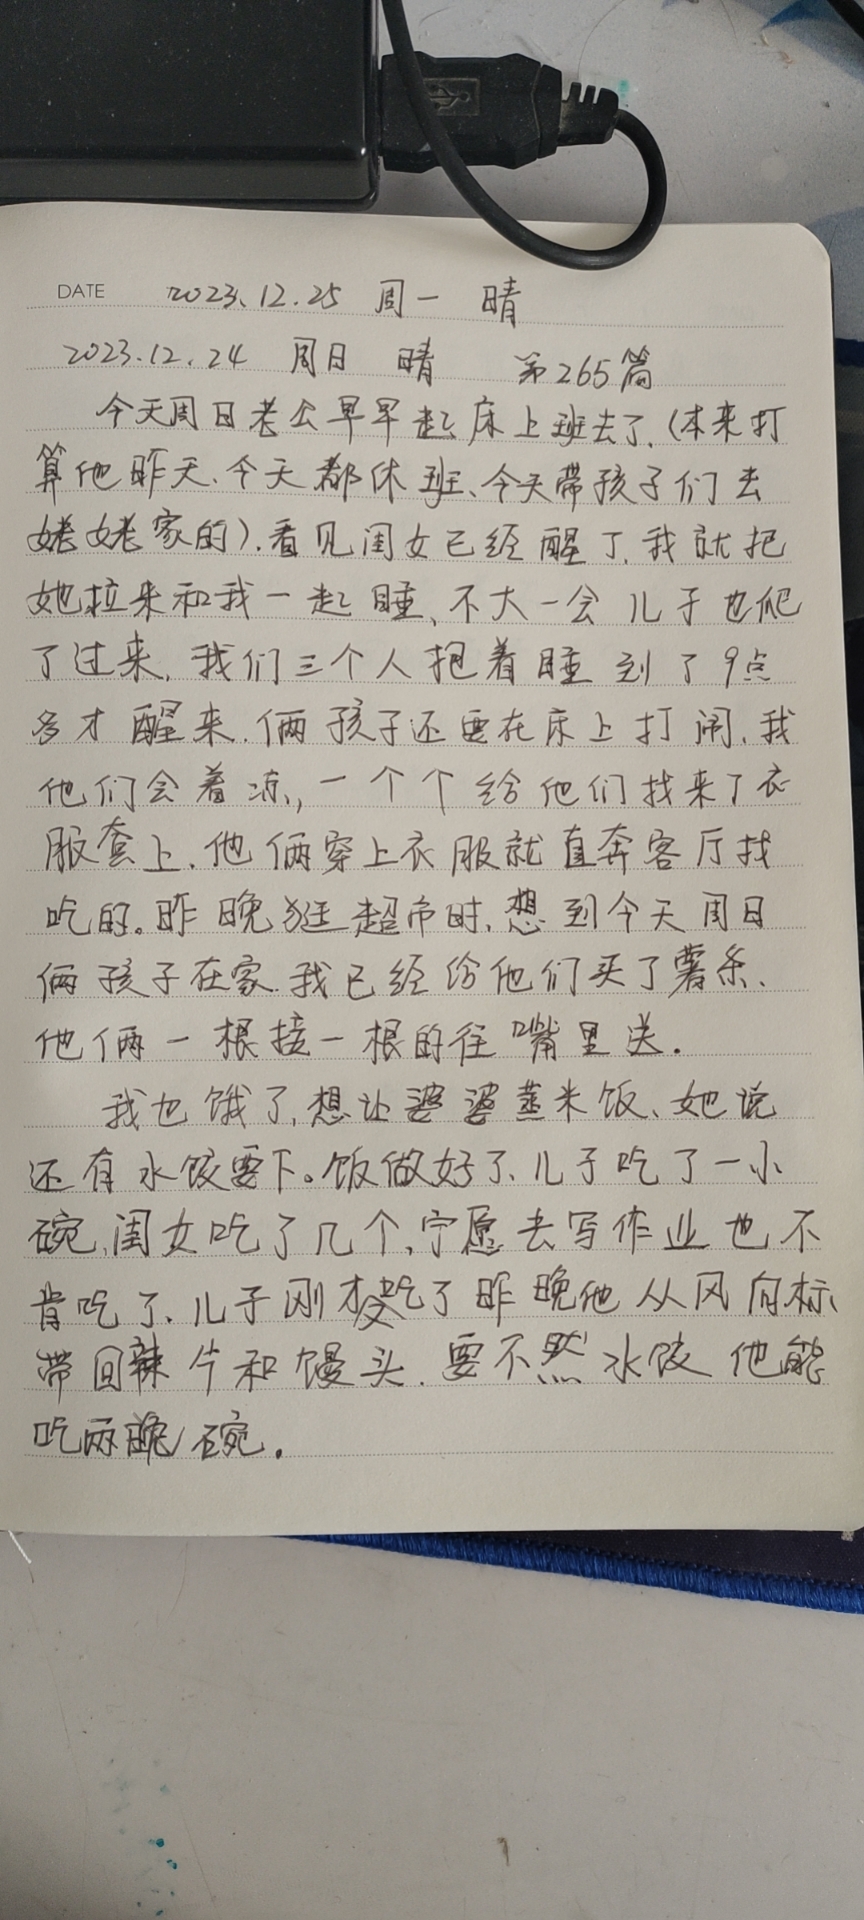 DATE 2023.12.25 周一 晴
2023.12.24 周日 晴 第265篇
今天周日老公早早起床上班去了.(本来打
算他昨天、今天都休班、今天带孩子们去
姥姥家的).看见闺女已经醒了,我就把
她拉来和我一起睡、不大一会儿子也爬
了过来,我们三个人抱着睡到了9点
多才醒来.俩孩子还要在床上打闹、我
他们会着凉,一个个给他们找来了衣
服套上.他俩穿上衣服就直奔客厅找
吃的。昨晚逛超市时,想到今天周日
俩孩子在家.我已经给他们买了薯条、
他俩一根接一根的往嘴里送.
我也饿了,想让婆婆蒸米饭、她说
还有水饺要下。饭做好了、儿子吃了一小
碗,闺女吃了几个,宁愿去写作业也不
肯吃了、儿子刚才吃了昨晚他从风向标
带回辣片和馒头.要不然水饺他能
吃两碗.